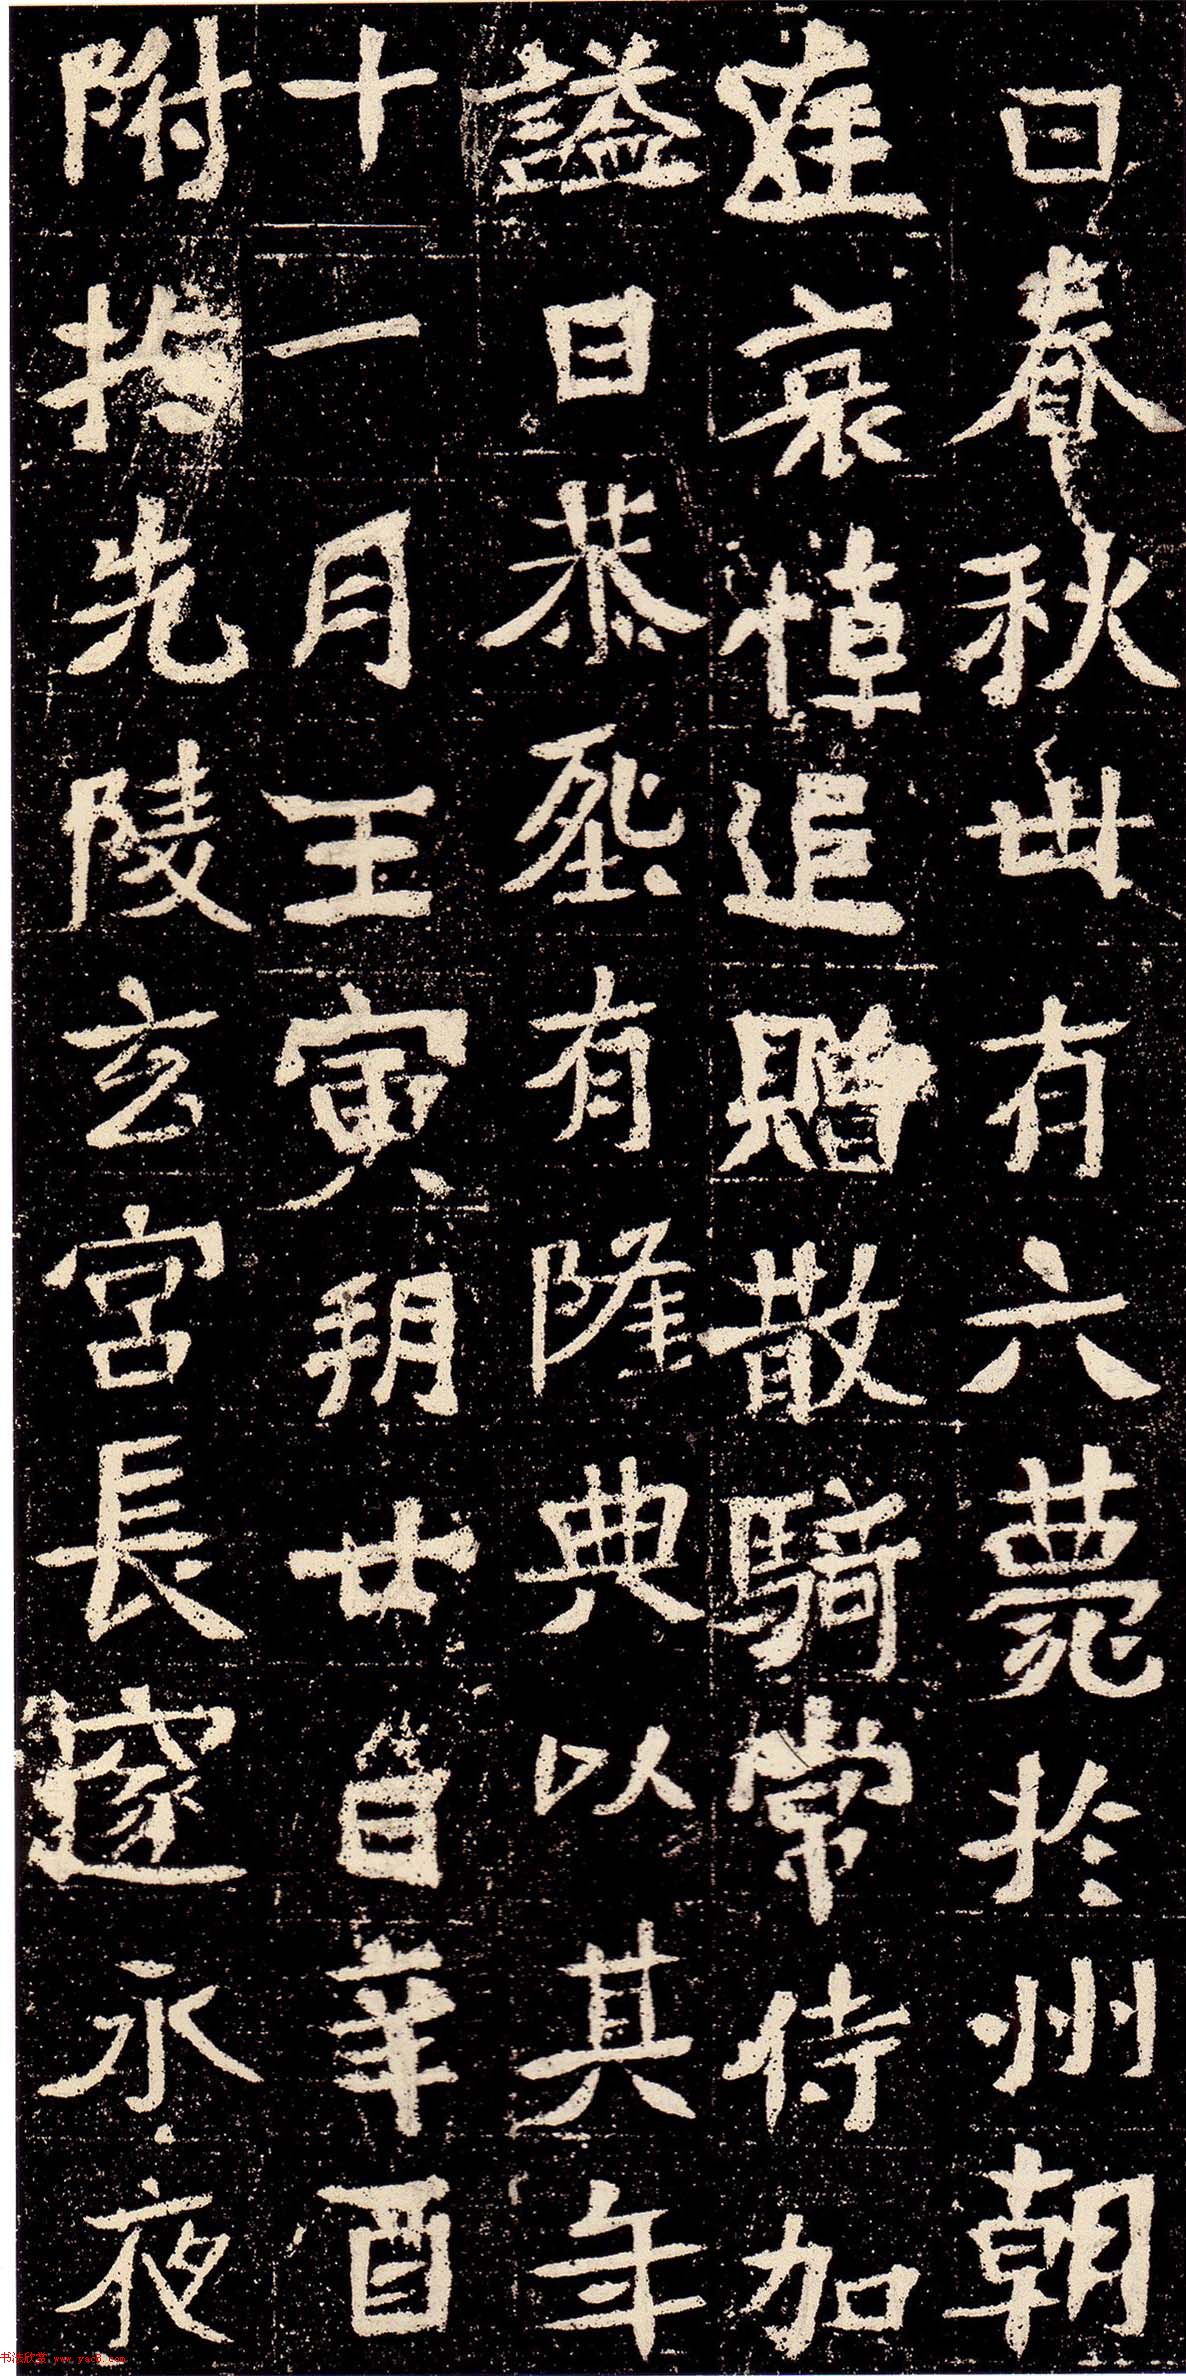 日春秋卌有六薨於州朝
廷哀悼追贈散騎常侍加
諡曰恭熙有隆典以其年
十一月壬寅朔廿日辛酉
附於先陵玄宮長邃永夜
书法欣赏 www.yac8.com